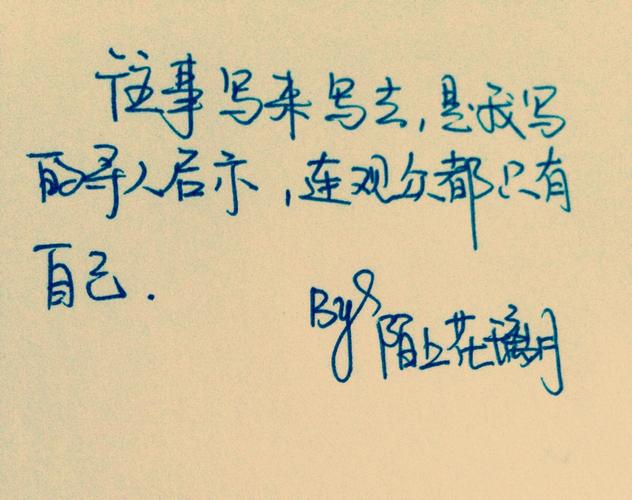 往事写来写去,是我写
的寻人启示,连观众都只有
自己.
By 陌上花璃月